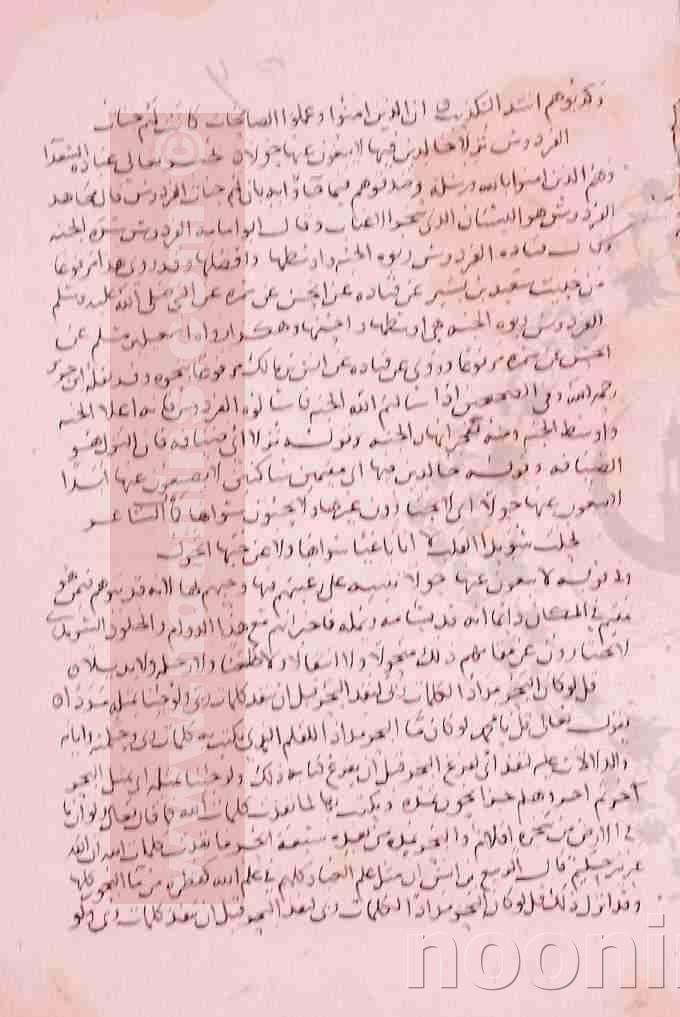 وكذبوهم اشد التكذيب ان الذين امنوا وعملوا الصالحات كانت لهم جنات
الفردوس نزلا خالدين فيها لا يبغون عنها حولا يخبر تعالى عن عباده السعدا
وهم الذين امنوا بالله ورسله وصدقوهم فيما جاؤا به بان لهم جنات الفردوس قال مجاهد
الفردوس هو البستان الذي شجره الاعناب وقال ابو امامة الفردوس سرة الجنه
وقال قتاده الفردوس ربوة الجنه واوسطها وافضلها وقد روى هذا مرفوعا
من حديث سعيد بن بشير عن قتاده عن الحسن عن سمره عن النبي صلى الله عليه وسلم
الفردوس ربوة الجنه هي اوسطها واحسنها وهكذا رواه اسمعيل بن مسلم عن
الحسن عن سمره مرفوعا وروى عن قتاده عن انس بن مالك مرفوعا بنحوه وقد نقله ابن جرير
رحمه الله وفي الصحيحين اذا سالتم الله الجنه فاسالوه الفردوس فانه اعلا الجنه
واوسط الجنه ومنه تفجر انهار الجنه وقوله نزلا اي ضيافه فان النزل هو
الضيافه وقوله خالدين فيها اي مقيمين ساكنين لا يظعنون عنها ابدا
لا يبغون عنها حولا اي لا يختارون غيرها ولا يحبون سواها كما قال الشاعر
فحلت سويدا القلب لا انا باغيا سواها ولا عن حبها اتحول
وفي قوله لا يبغون عنها حولا تنبيه على رغبتهم فيها وحبهم لها لانه قد يتوهم فيمن هو
مقيم في المكان دائما انه قد يسامه او يمله فاخبر انهم مع هذا الدوام والخلود السرمدي
لا يختارون عن مقامهم ذلك متحولا ولا انتقالا ولا ظعنا ولا رحله ولا بدلا
قل لو كان البحر مدادا لكلمات ربي لنفد البحر قبل ان تنفد كلمات ربي ولو جئنا بمثله مددا
يقول تعالى قل يا محمد لو كان ماء البحر مدادا للقلم الذي يكتب به كلمات ربي وحكمه واياته
والدالات عليه لنفد اي لفرغ البحر قبل ان يفرغ كتابة ذلك ولو جئنا بمثله اي بمثل البحر
اخر ثم اخر وهلم جرا بحور تمده ويكتب بها لما نفدت كلمات الله كما قال تعالى ولو ان ما
في الارض من شجرة اقلام والبحر يمده من بعده سبعة ابحر ما نفدت كلمات الله ان الله
عزيز حكيم قال الربيع بن انس ان مثل علم العباد كلهم في علم الله كقطرة من ماء البحور كلها
وقد انزل ذلك قل لو كان البحر مدادا لكلمات ربي لنفد البحر قبل ان تنفد كلمات ربي ولو